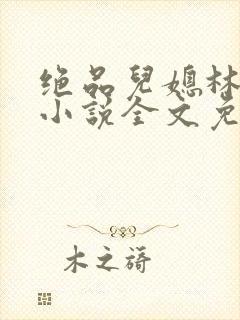 绝品兒媳林
小說全文免
木之蒔